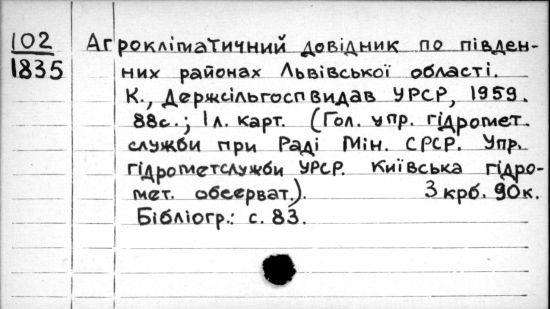 102
1835
Агрокліматичний довідник по півден-
них районах Львівської області.
К., Держсільгоспвидав УРСР, 1959.
88с.; 1 л. карт. (Гол. упр. гідромет.
служби при Раді Мін. СРСР. Упр.
гідрометслужби УРСР. Київська гідро-
мет. обсерват.). 3 крб. 90к.
Бібліогр.: с. 83.